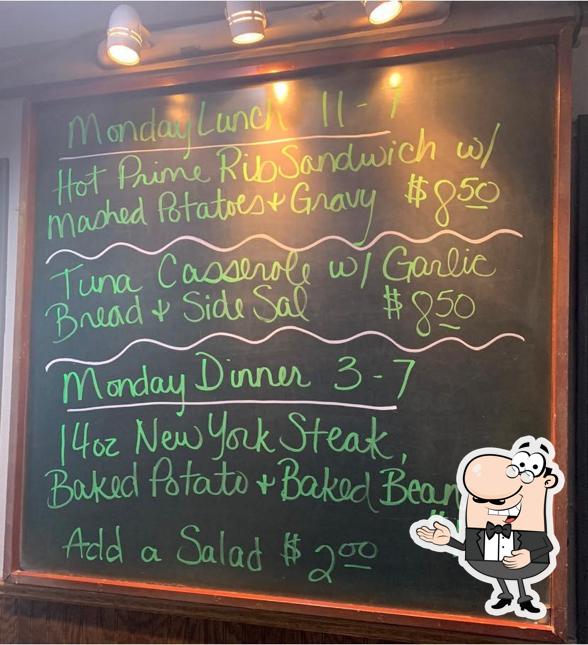 Monday Lunch 11 -
Hot Prime Rib Sandwich w/
Mashed Potatoes + Gravy $8.50
Tuna Casserole w/ Garlic
Bread + Side Sal $8.50
Monday Dinner 3 - 7
14oz New York Steak,
Baked Potato + Baked Bean
Add a Salad $2.00